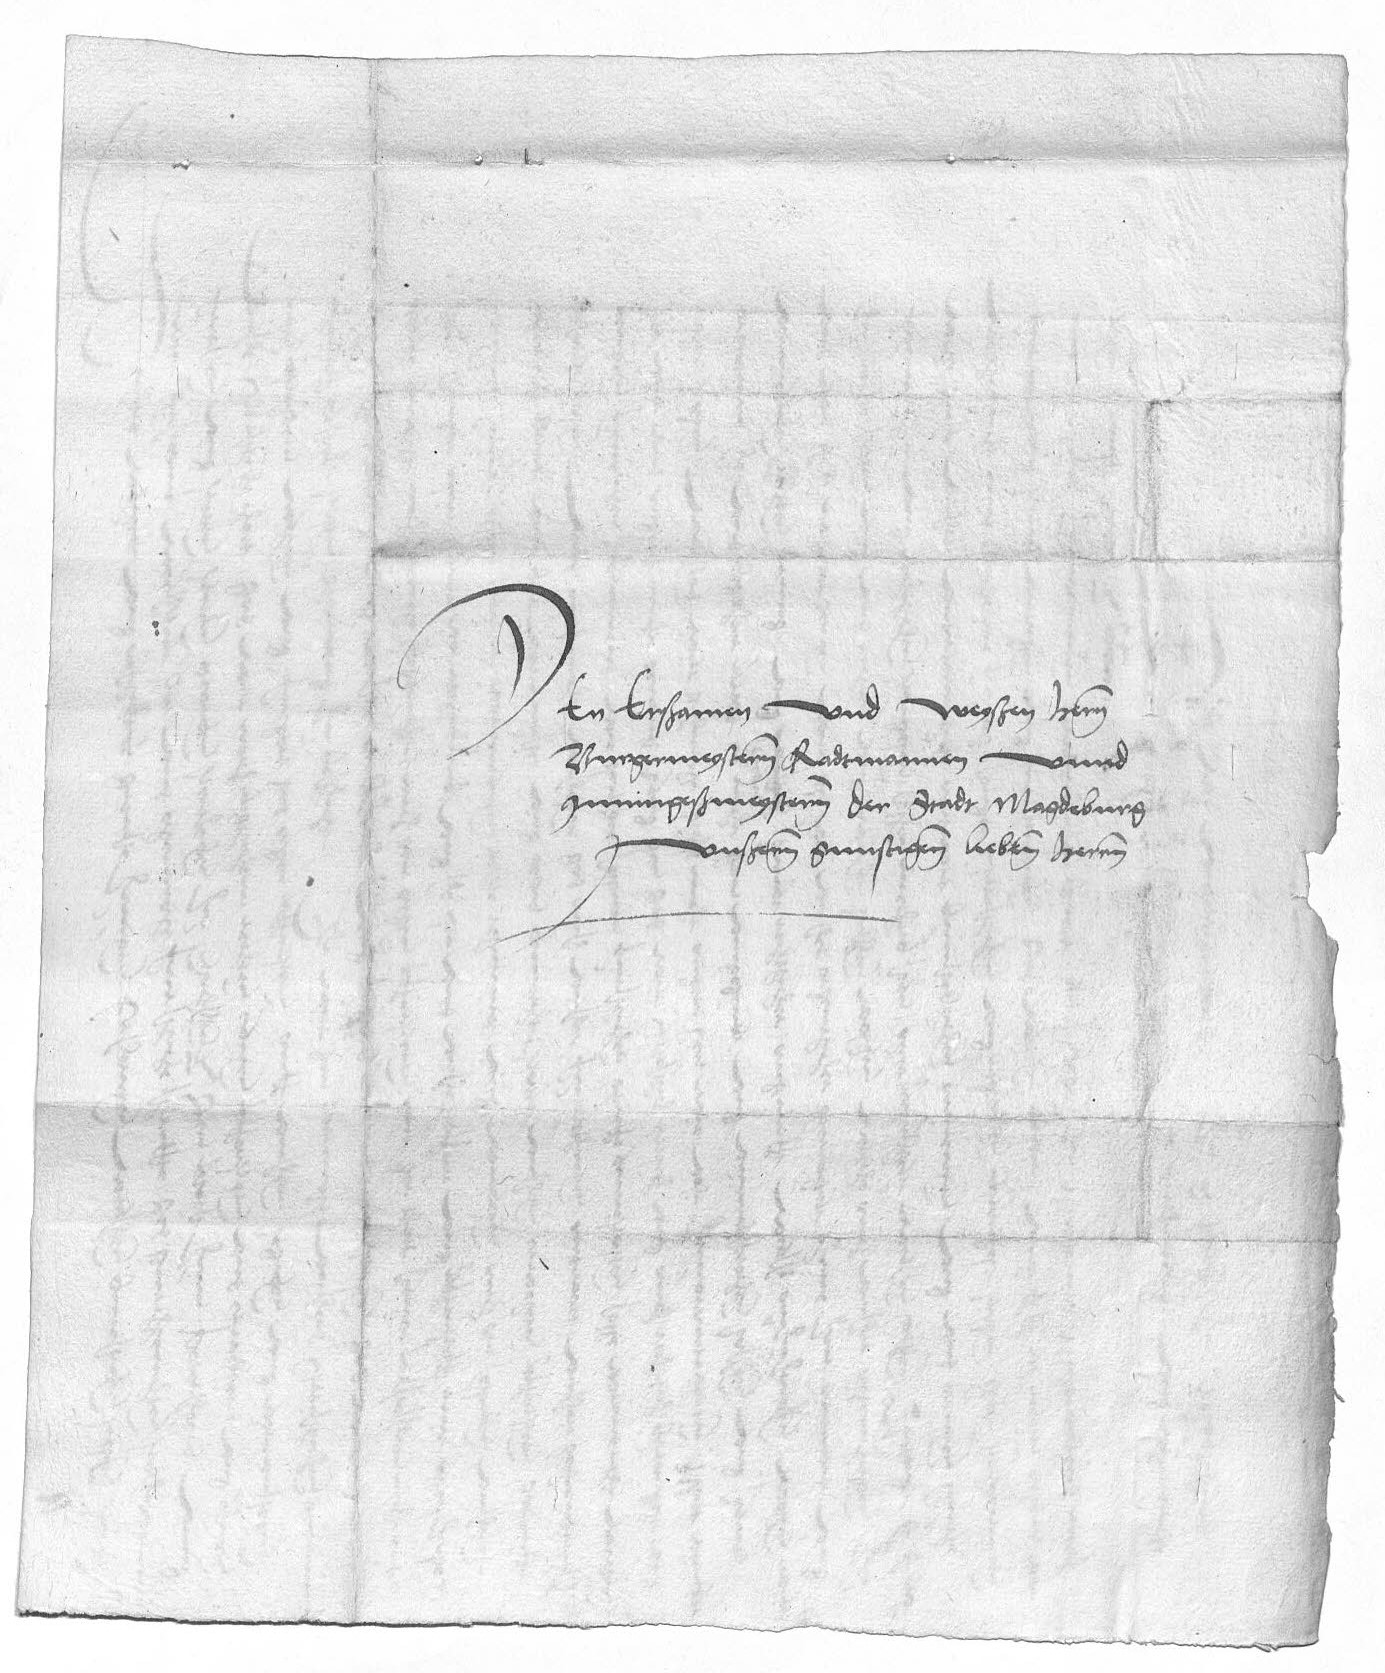 Den Erßamen und weyßen hern
Burgermeystern Radtmannen unnd
Inningeßmeystern der Stadt Magdeburg
unßern gunstigen lieben herrn